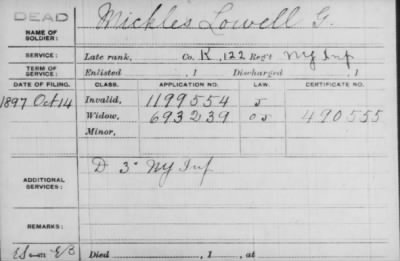 DEAD
NAME OF SOLDIER: Mickles Lowell G.
SERVICE: Late rank, Co. K, 122 Reg't NY Inf
TERM OF SERVICE: Enlisted , 1 Discharged , 1
DATE OF FILING. CLASS. APPLICATION NO. LAW. CERTIFICATE NO.
1897 Oct 14 Invalid, 1199554 5
Widow, 693239 05 490555
Minor,
ADDITIONAL SERVICES: D 3" NY Inf
REMARKS:
Died , 1 , at